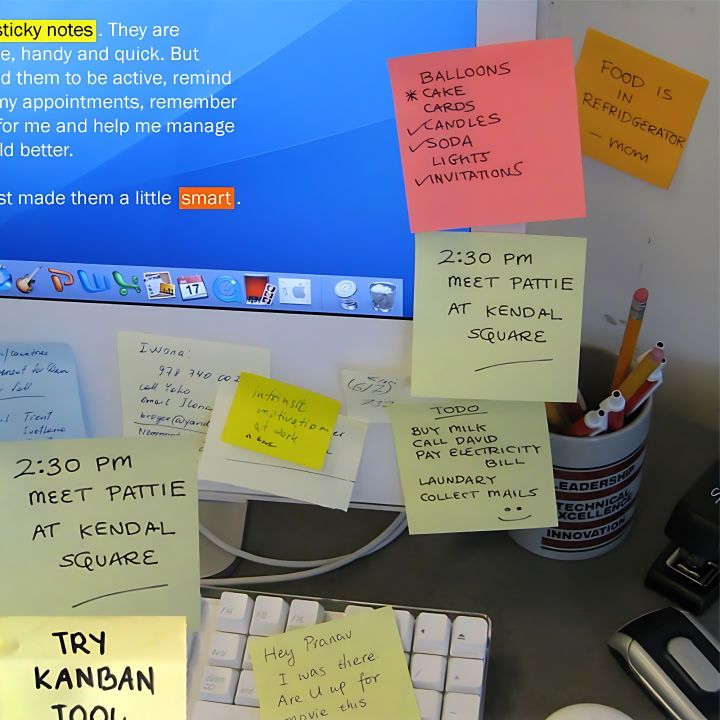 sticky notes. They are
e, handy and quick. But
d them to be active, remind
my appointments, remember
for me and help me manage
ld better.
st made them a little smart.
17
BALLOONS
* CAKE
CARDS
✓CANDLES
✓SODA
LIGHTS
✓INVITATIONS
FOOD IS
IN
REFRIDGERATOR
- mom
2:30 PM
MEET PATTIE
AT KENDAL
SQUARE
Iwona:
978 740
call Yoko
email Ilona
intrinsic
motivation
at work
TODO
BUY MILK
CALL DAVID
PAY ELECTRICITY
BILL
LAUNDARY
COLLECT MAILS
LEADERSHIP
TECHNICAL
EXCELLENCE
INNOVATION
2:30 PM
MEET PATTIE
AT KENDAL
SQUARE
TRY
KANBAN
TOOL
Hey Pranav
I was there.
Are U up for
movie this